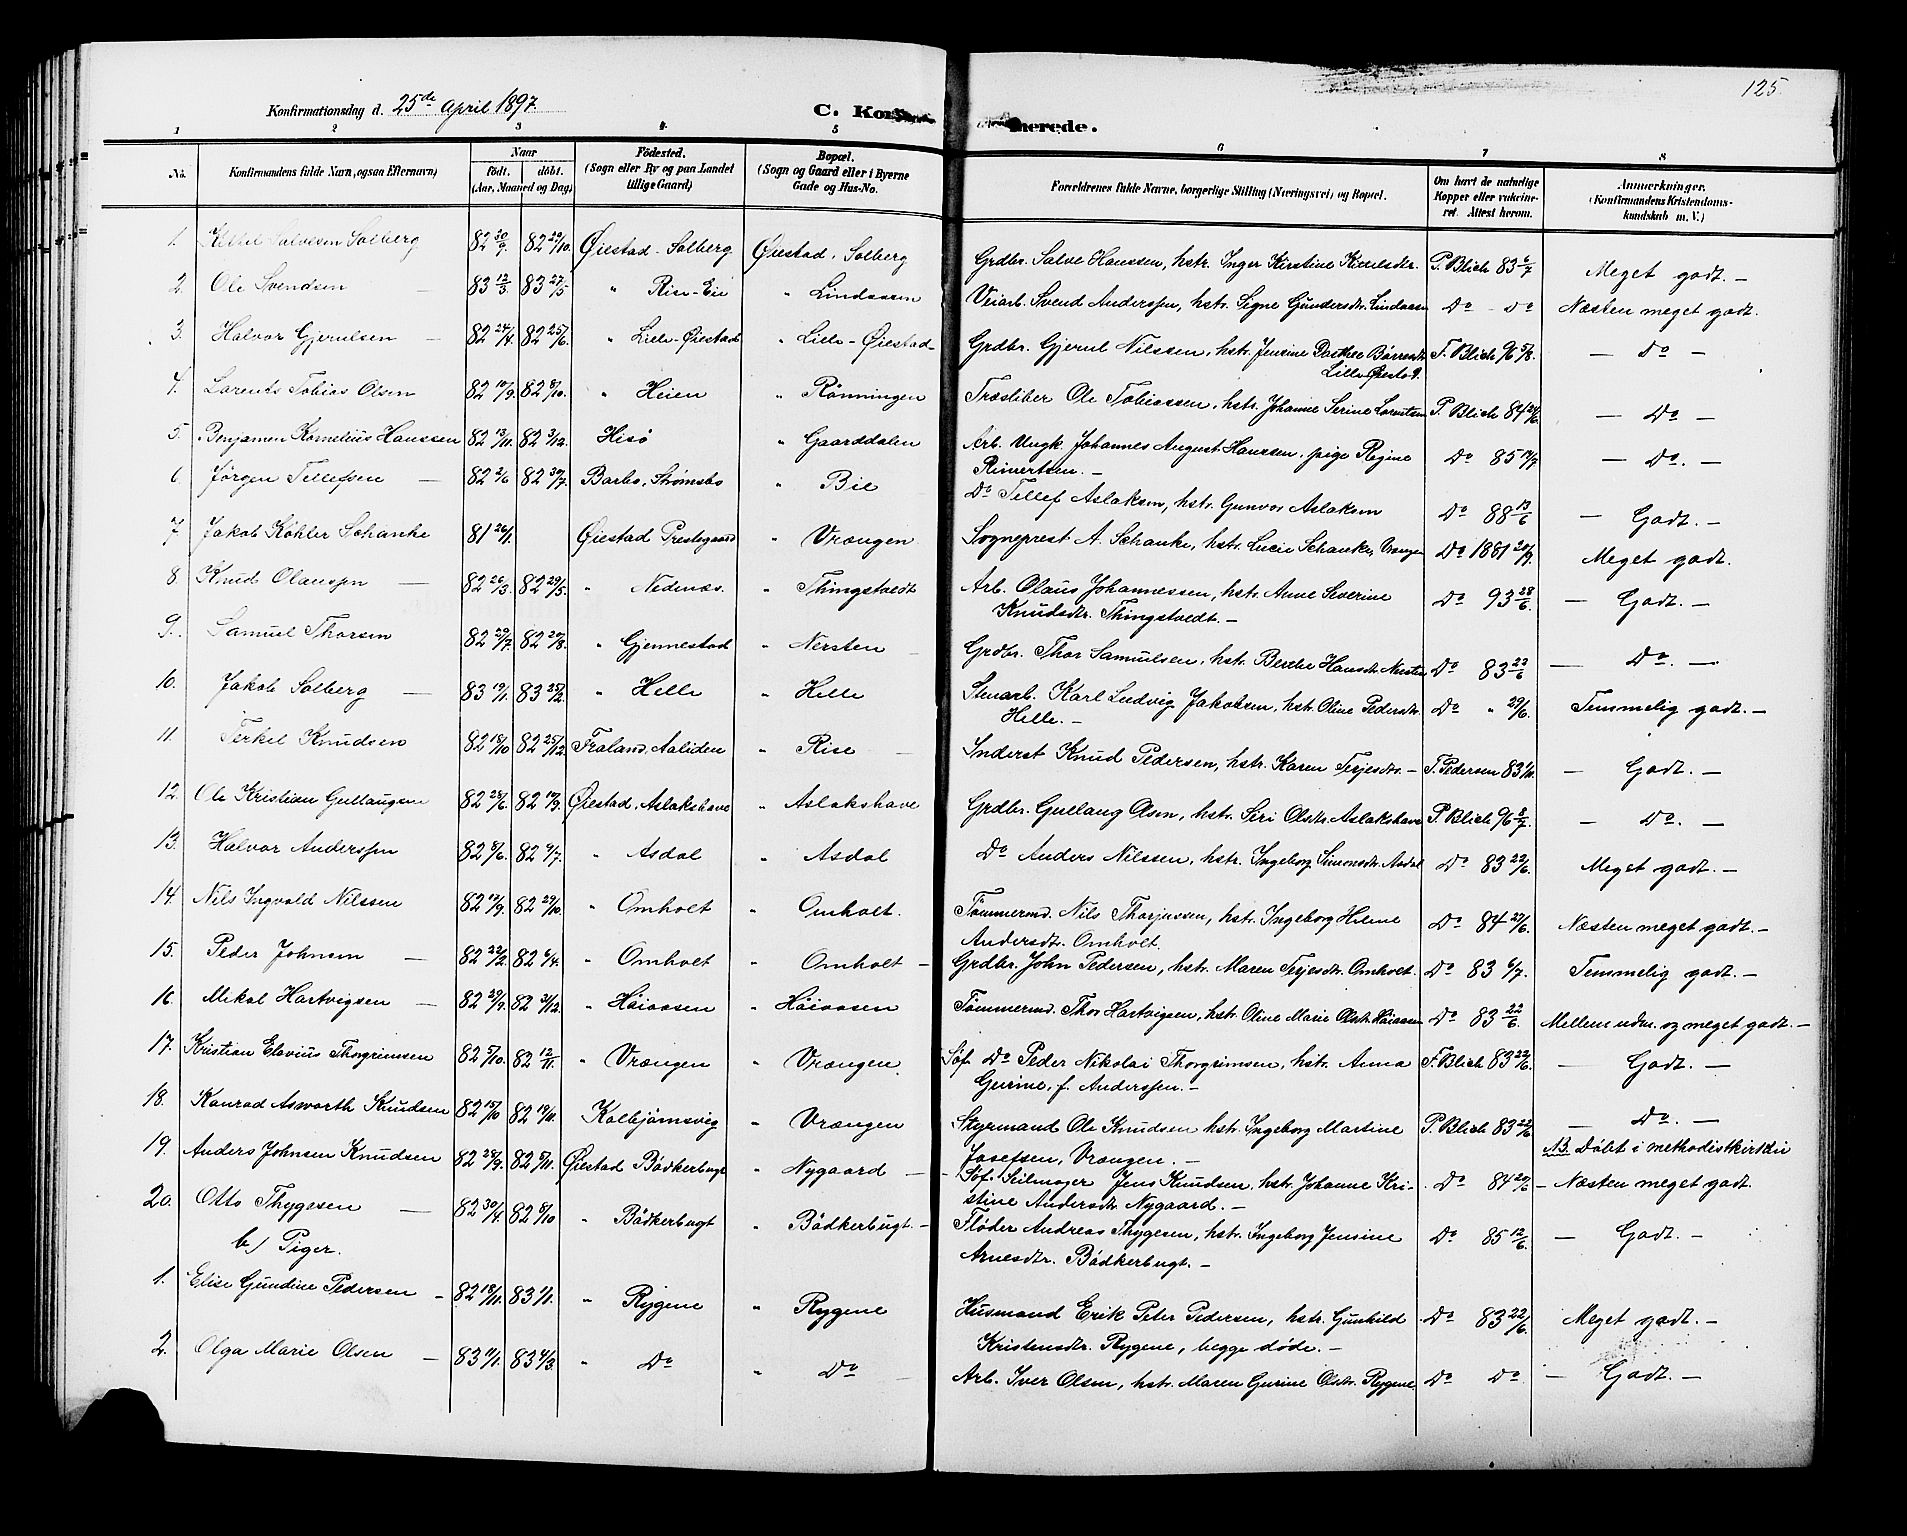 125
Konfirmationsdag d. 25de April 1897. C. Kon merede.
1 2 3 4 5 6 7 8
No. Konfirmandens fulde Navn, ogsaa Efternavn) Naar født. døbt. (Aar, Maaned og Dag) Fødested. (Sogn eller By og paa Landet tillige Gaard) Bopæl. (Sogn og Gaard eller i Byerne Gade og Hus-No. Forældrenes fulde Navne, borgerlige Stilling (Næringsvei) og Bopæl. Om havt de naturlige Kopper eller vakcineret. Attest herom. Anmærkninger. (Konfirmandens Kristendomskundskab m. V.)
1. Kittil Salvesen Solberg 82 30/9. 82 29/10. Øiestad. Solberg Øiestad. Solberg Grdbr. Salve Hanssen, hstr. Inger Kirstine Kittelsdtr. P. Blich 83 6/7 Meget godt. —
2. Ole Svendsen — 83 12/3. 83 27/5. " Rise-Eie " Lindaasen Veiarb. Svend Anderssen, hstr. Signe Gundersdtr. Lindaasen Do - Do Næsten meget godt.
3. Halvor Gjerulsen — 82 24/4. 82 25/6. " Lille-Øiestad " Lille-Øiestad- Grdbr. Gjerul Nilssen, hstr. Jensine Dorthea Børresdtr. Lille Øiestad. P. Blich 96 5/8. — Do —
4. Lorents Tobias Olsen 82 10/9. 82 8/10. " Heien " Rønningen Træsliber Ole Tobiassen, hstr. Johanne Serine Lorentsen P. Blich 84 24/6. — Do —
5. Benjamen Kornelius Hanssen 82 13/11. 82 3/12. Hisø " Gaarddalen Arb. Ungk. Johannes August Hanssen, pige Regine Reinertsen. — Do 85 14/7 — Do. —
6. Jørgen Tellefsen — 82 2/6 82 30/7. Barbo, Strømsbo " Bie Do Tellef Aslaksen, hstr. Gunvor Aslaksen Do 88 13/6 — Godt. —
7. Jakob Köhler Schanke 81 26/1. Øiestad Prestegaard " Vrængen Sogneprest A. Schanke, hstr. Lucie Schanke, Vrængen Do 1881 20/9. Meget godt.
8 Knud Olaussen — 82 26/3. 82 29/5. " Nedenæs. " Thingstvedt Arb. Olaus Johannessen, hstr. Anne Severine Knudsdtr. Thingstvedt. — Do 93 28/6. — Godt. —
9. Samuel Thorsen 82 29/7. 82 20/8. " Gjennestad " Nersten Grdbr. Thor Samuelsen, hstr. Berthe Hansdtr. Nersten Do 83 23/6 — Do. —
10. Jakob Solberg — 83 19/1. 83 25/2. " Helle " Helle Stenarb. Karl Ludvig Jakobsen, hstr. Oline Pedersdtr. Helle. — Do " 29/6. Temmelig godt. —
11. Terkel Knudsen 82 18/10 82 25/12. Froland, Aaliden " Rise — Inderst Knud Pedersen, hstr. Karen Terjesdtr. — T. Pedersen 83 — Godt. —
12. Ole Kristian Gullaugsen 82 28/6. 82 17/9. Øiestad, Aslakshave " Aslakshave Grdbr. Gullaug Olsen, hstr. Siri Olsdtr. Aslakshave P. Blich 96 2/7. — Do. —
13. Halvor Anderssen 82 8/6. 82 9/7. " Asdal " Asdal Do Anders Nilssen, hstr. Ingeborg Simonsdtr. Asdal Do 83 22/6. Meget godt. —
14. Nils Ingvald Nilssen 82 17/9. 82 29/10. " Omholt " Omholt. Tømmermd. Nils Thorjussen, hstr. Ingeborg Helene Andersdtr. Omholt. Do 84 27/6. Næsten meget godt. —
15. Peder Johnsen — 82 22/2. 82 6/4. " Omholt " Omholt — Grdbr. John Pedersen, hstr. Maren Terjesdtr. Omholt. Do 83 6/7. Temmelig godt. —
16. Mikal Hartvigsen — 82 29/9. 82 3/12. " Høiaasen " Høiaasen Tømmermd. Thor Hartvigsen, hstr. Oline Marie Olsdtr. Høiaasen Do 83 22/6. Mellem udm. og meget godt. —
17. Kristian Elavius Thorgrimsen 82 5/10. 82 12/11. " Vrængen " Vrængen. Søf. Do Peder Nikolai Thorgrimsen, hstr. Anna Gurine, f. Anderssen. — P. Blich 83 22/6. — Godt. —
18. Konrad Asworth Knudsen 82 15/10 82 19/11. Kolbjørnsvig " Vrængen Styrmand Ole Knudsen hstr. Ingeborg Martine Josefsen, Vrængen. — P. Blich 83 22/6 — Do. —
19. Anders Johnsen Knudsen 82 28/9. 82 5/11. Øiestad Bödkerbugt " Nygaard — Søf. Seilmager Jens Knudsen, hstr. Johanne Kristine Andersdtr. Nygaard. — Do 84 20/6 NB. Døbt i methodistkirken — Næsten meget godt.
20. Otto Thygesen — 82 30/4. 82 8/10 " Bödkerbugt " Bödkerbugt. — Fløder Andreas Thygesen, hstr. Ingeborg Jensine Arnesdtr. Bödkerbugt. — Do 85 12/6. — Godt. —
b) Piger.
1. Elise Gundine Pedersen — 82 18/11. 83 1/1. " Rygene " Rygene Husmand Erik Peter Pedersen, hstr. Gunhild Kristensdtr. Rygene, begge døde. — Do 83 22/6. Meget godt. —
2. Olga Marie Olsen — 83 11/1. 83 4/3. " Do " Do — Arb. Iver Olsen, hstr. Maren Gurine Olsdtr. Rygene Do Do — Godt. —